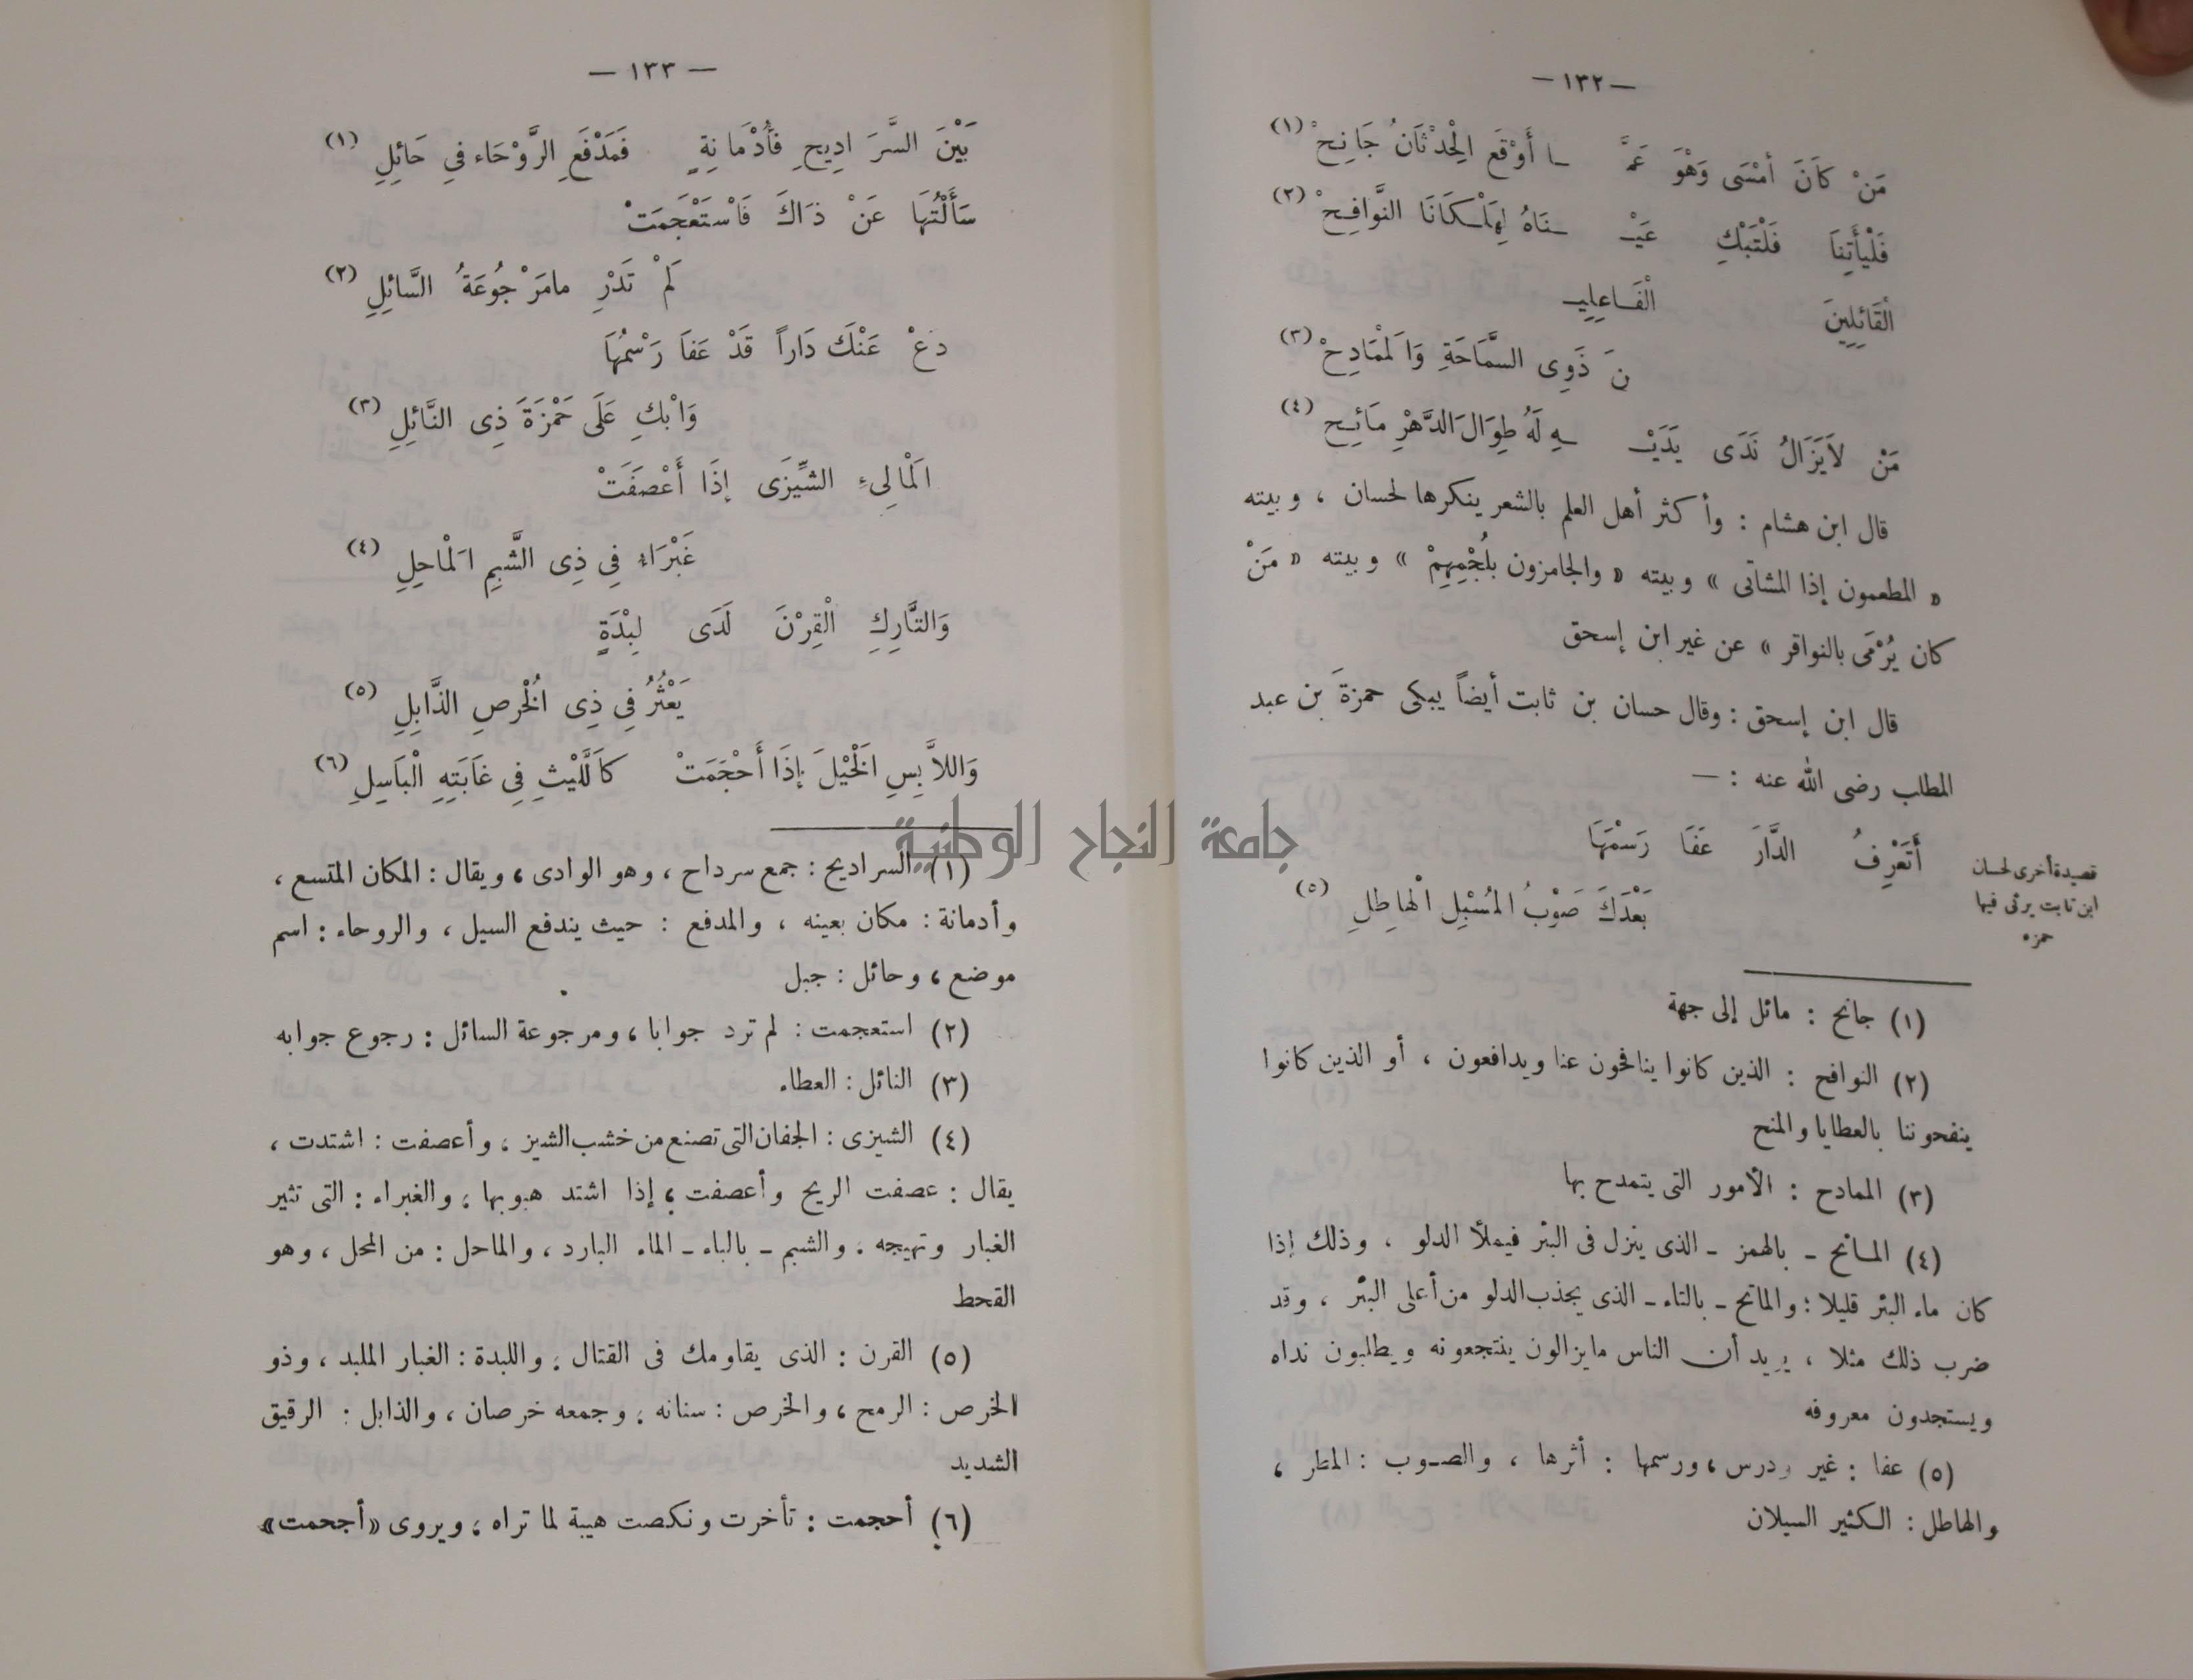 — ١٣٢ —
مَنْ كَانَ أَمْسَى وَهْوَ عَمَّـ ـا أَوْقَعَ الْحِدْثَانُ جَانِحْ (١)
فَلْيَأْتِنَا فَلْتَبْكِ عَيْـ ـنَاهُ لِهَلْكَانَا النَّوَافِحْ (٢)
الْقَائِلِينَ الْفَاعِلِيـ
نَ ذَوِى السَّمَاحَةِ وَالْمَمَادِحْ (٣)
مَنْ لاَيَزَالُ نَدَى يَدَيْـ ـهِ لَهُ طِوَالَ الدَّهْرِ مَائِحْ (٤)
قال ابن هشام : وأكثر أهل العلم بالشعر ينكرها لحسان ، وبيته
« المطعمون إذا المشاتى » وبيته « والجامزون بلُجْمِهِمْ » وبيته « مَنْ
كان يُرْمَى بالنواقر » عن غير ابن إسحق
قال ابن إسحق : وقال حسان بن ثابت أيضاً يبكى حمزةَ بن عبد
المطلب رضى الله عنه : —
أَتَعْرِفُ الدَّارَ عَفَا رَسْمُهَا
بَعْدَكَ صَوْبُ الْمُسْبِلِ الْهَاطِلِ (٥)
قصيدة أخرى لحسان
ابن ثابت يرثى فيها
حمزه
(١) جانح : مائل إلى جهة
(٢) النوافح : الذين كانوا ينافحون عنا ويدافعون ، أو الذين كانوا
ينفحوننا بالعطايا والمنح
(٣) الممادح : الأمور التى يتمدح بها
(٤) المائح - بالهمز - الذى ينزل فى البئر فيملأ الدلو ، وذلك إذا
كان ماء البئر قليلا ؛ والماتح - بالتاء - الذى يجذب الدلو من أعلى البئر ، وقد
ضرب ذلك مثلا ، يريد أن الناس مايزالون ينتجعونه ويطلبون نداه
ويستجدون معروفه
(٥) عفا : غير ودرس ، ورسمها : أثرها ، والصوب : المطر ،
والهاطل : الكثير السيلان
— ١٣٣ —
بَيْنَ السَّرَادِيحِ فَأُدْمَانَةٍ فَمَدْفَعِ الرَّوْحَاء فِي حَائِلِ (١)
سَأَلْتُهَا عَنْ ذَاكَ فَاسْتَعْجَمَتْ
لَمْ تَدْرِ مامَرْجُوعَةُ السَّائِلِ (٢)
دَعْ عَنْكَ دَاراً قَدْ عَفَا رَسْمُهَا
وَابْكِ عَلَى حَمْزَةَ ذِى النَّائِلِ (٣)
الْمَالِىءِ الشِّيزَى إِذَا أَعْصَفَتْ
غَبْرَاءُ فِي ذِى الشَّبِمِ الْمَاحِلِ (٤)
وَالتَّارِكِ الْقِرْنَ لَدَى لِبْدَةٍ
يَعْثُرُ فِي ذِى الْخُرصِ الذَّابِلِ (٥)
وَاللاَّبِسِ الْخَيْلَ إِذَا أَحْجَمَتْ كَاللَّيْثِ فِي غَابَتِهِ الْبَاسِلِ (٦)
(١) السراديح : جمع سرداح ، وهو الوادى ، ويقال : المكان المتسع ،
وأدمانة : مكان بعينه ، والمدفع : حيث يندفع السيل ، والروحاء : اسم
موضع ، وحائل : جبل
(٢) استعجمت : لم ترد جوابا ، ومرجوعة السائل : رجوع جوابه
(٣) النائل : العطاء
(٤) الشيزى : الجفان التى تصنع من خشب الشيز ، وأعصفت : اشتدت ،
يقال : عصفت الريح وأعصفت ؛ إذا اشتد هبوبها ؛ والغبراء : التى تثير
الغبار وتهيجه . والشبم - بالباء - الماء البارد ، والماحل : من المحل ، وهو
القحط
(٥) القرن : الذى يقاومك فى القتال ؛ واللبدة : الغبار الملبد ، وذو
الخرص : الرمح ، والخرص : سنانه ؛ وجمعه خرصان ، والذابل : الرقيق
الشديد
(٦) أحجمت : تأخرت ونكصت هيبة لما تراه ؛ ويروى «أجحمت»
جامعة النجاح الوطنية